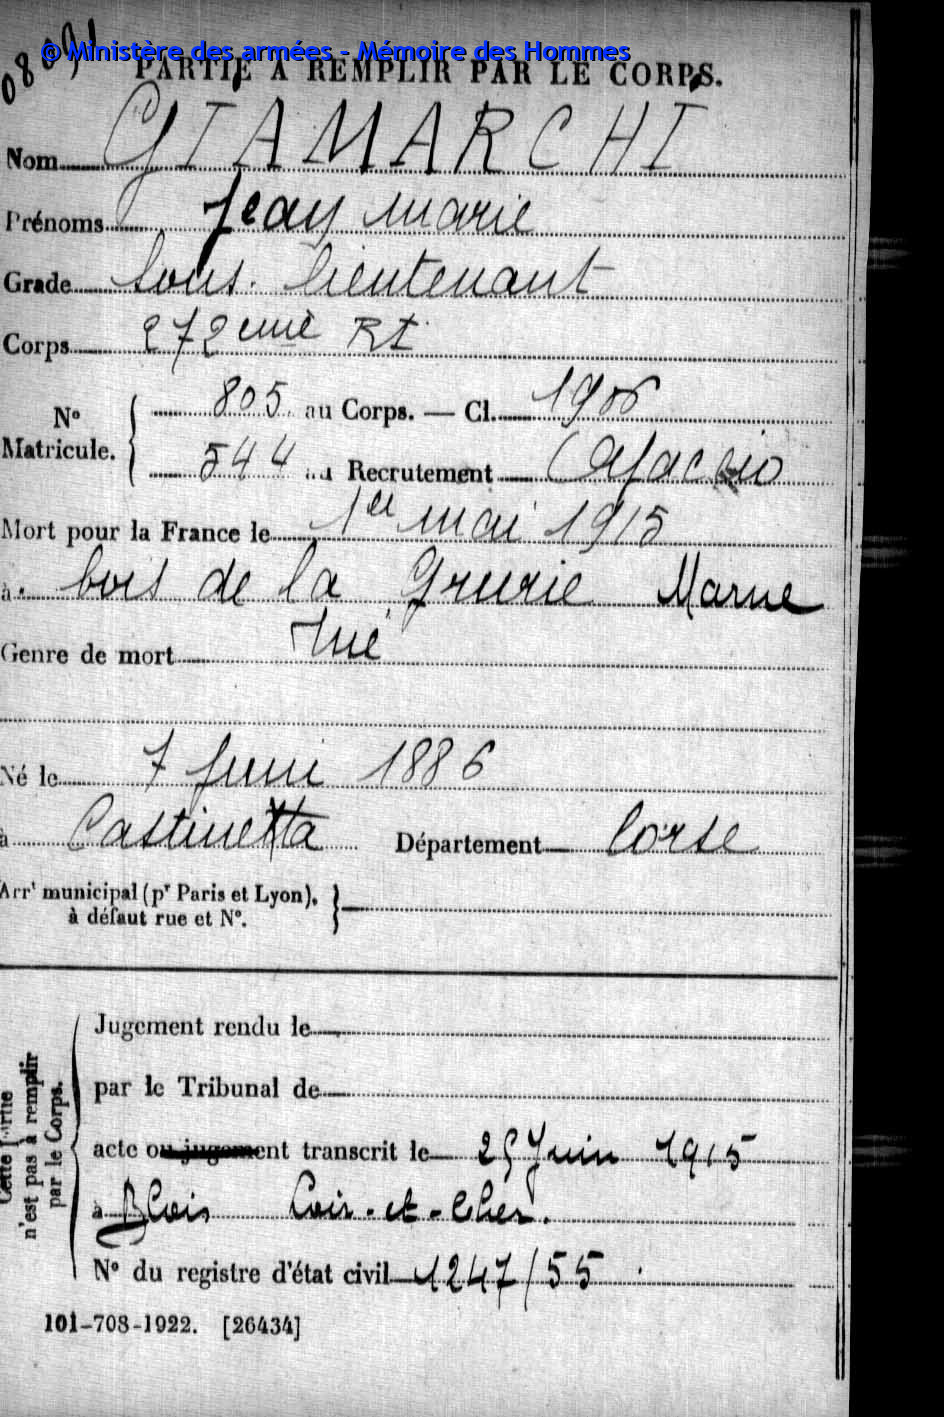 © Ministère des armées - Mémoire des Hommes
PARTIE A REMPLIR PAR LE CORPS.
Nom GIAMARCHI
Prénoms Jean Marie
Grade Sous. lieutenant
Corps 272eme RI
N° Matricule. 805 au Corps. — Cl. 1906
544 au Recrutement Ajaccio
Mort pour la France le 1er mai 1915
à bois de la Grurie Marne
Genre de mort Tué
Né le 7 Juin 1886
à Castinetta Département Corse
Arrt municipal (pr Paris et Lyon),
à défaut rue et N°.
Cette partie
n'est pas à remplir
par le Corps.
Jugement rendu le
par le Tribunal de
acte ou jugement transcrit le 25 Juin 1915
à Blois Loir-et-Cher.
N° du registre d'état civil 1247/55
101-708-1922. [26434]